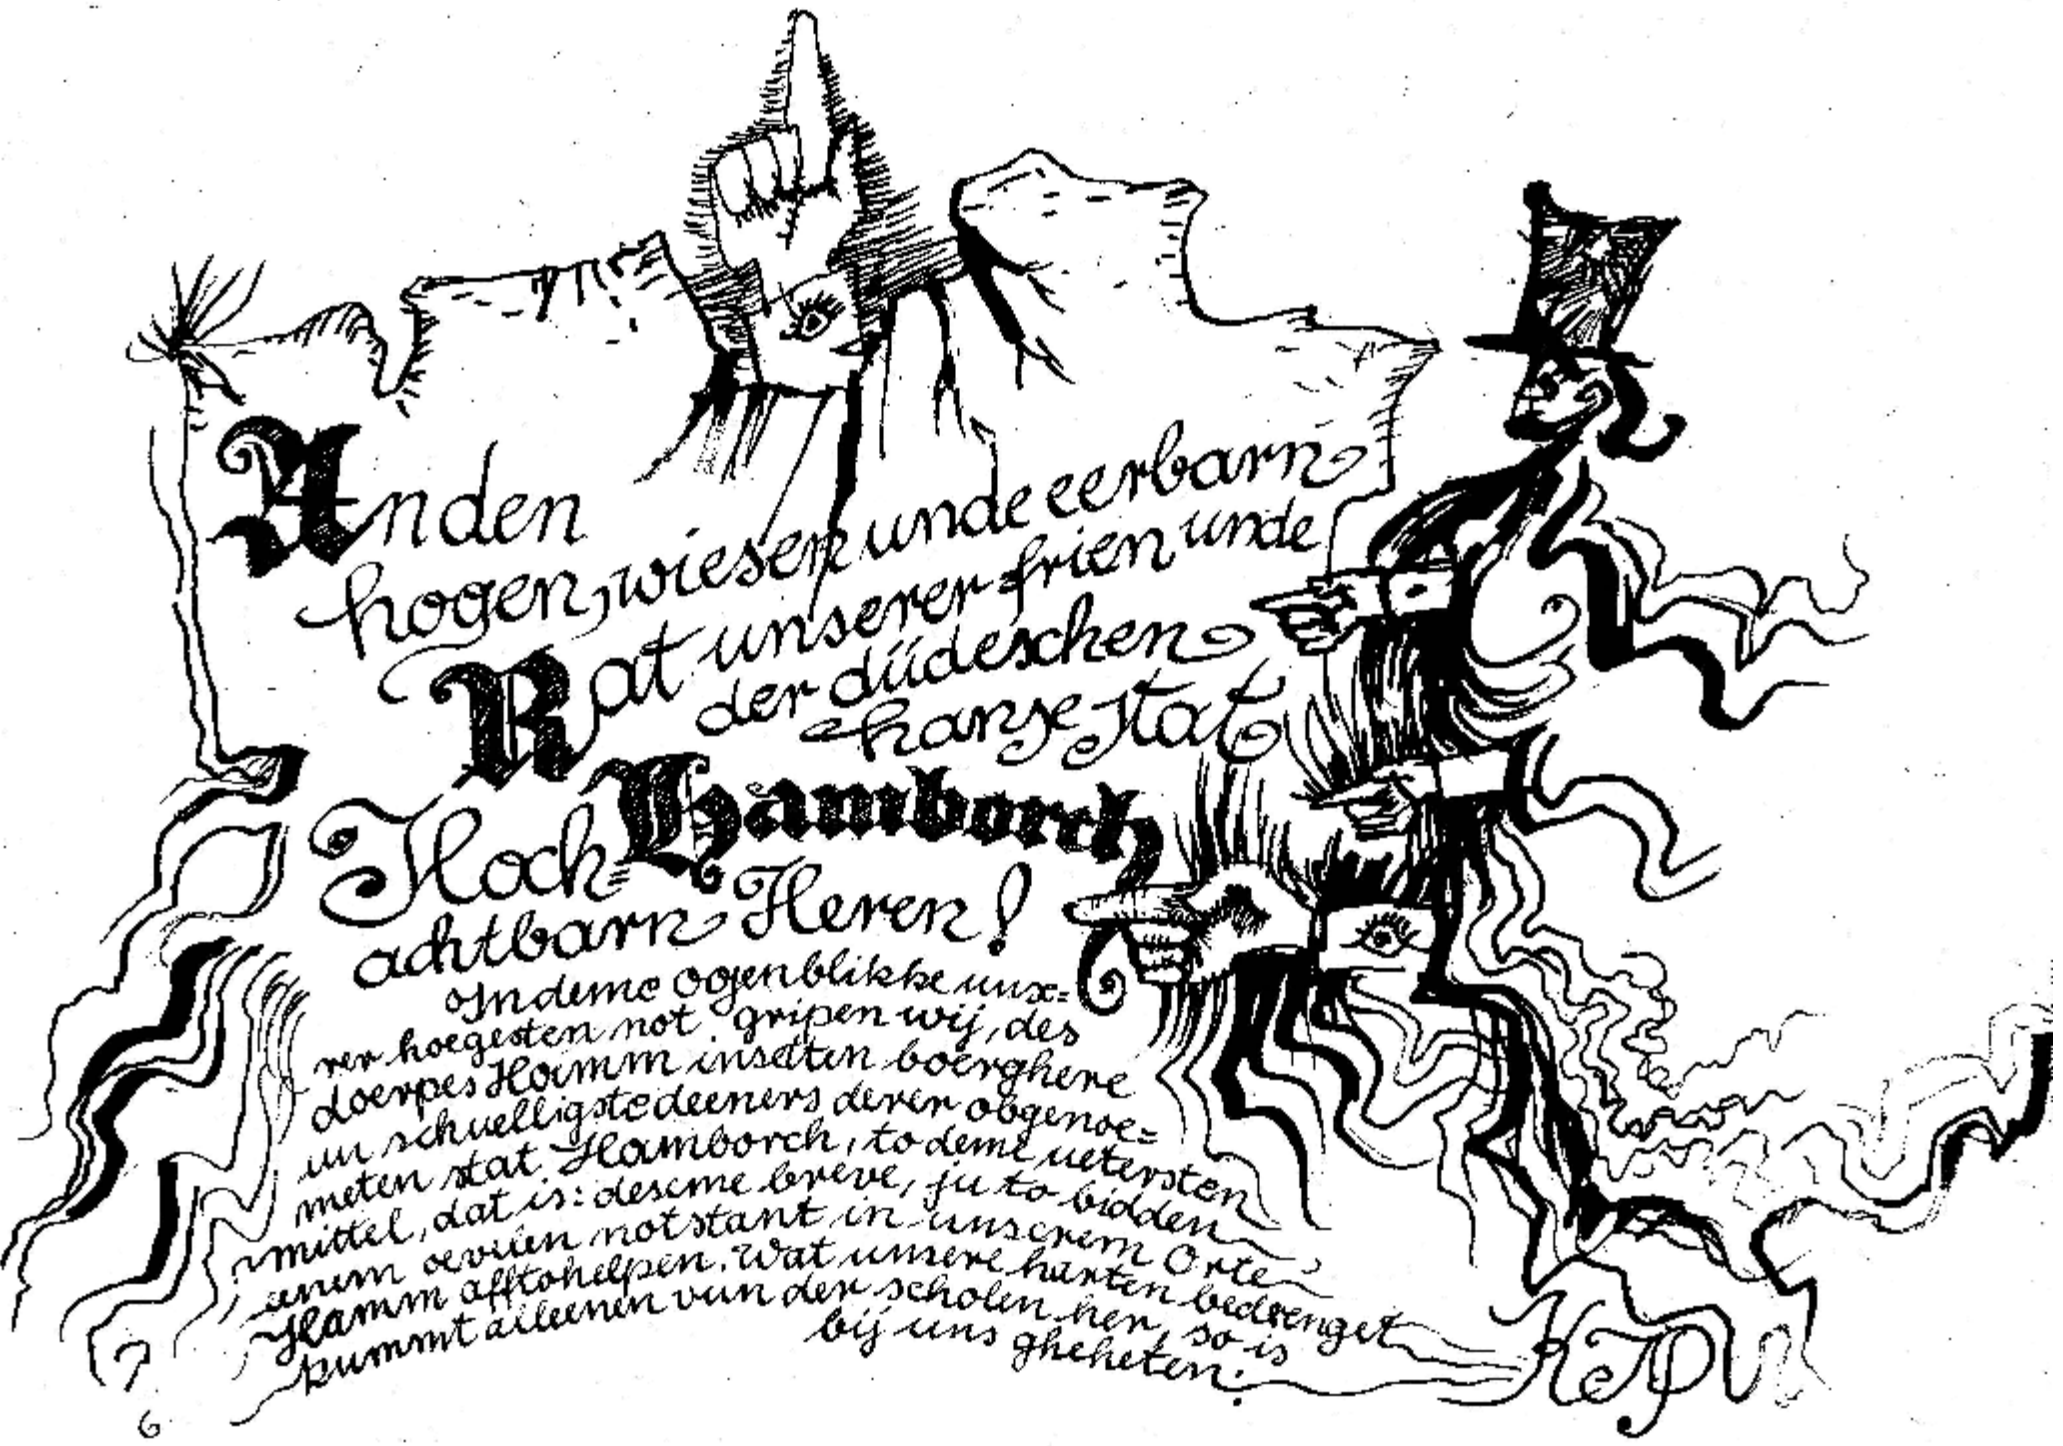 An den
hogen, wiesen unde eerbarn
Rat unserer frien unde
der düdeschen
hanse stat
Hamborch
Hoch=
achtbarn Heren!
In deme ogenblikke uns=
rer hoegesten not gripen wij, des
doerpes Hamm insetten boerghere
un schuelligste deeners derer obgenoe=
meten stat Hamborch, to deme uetersten
mittel, dat is: deseme breve, ju to bidden
enem oevlen notstant in unserem Orte
Hamm afftohelpen. Wat unsere harten bedrenget
kummt alleenen vun der scholen her, so is
bij uns gheheten.
KJP
6